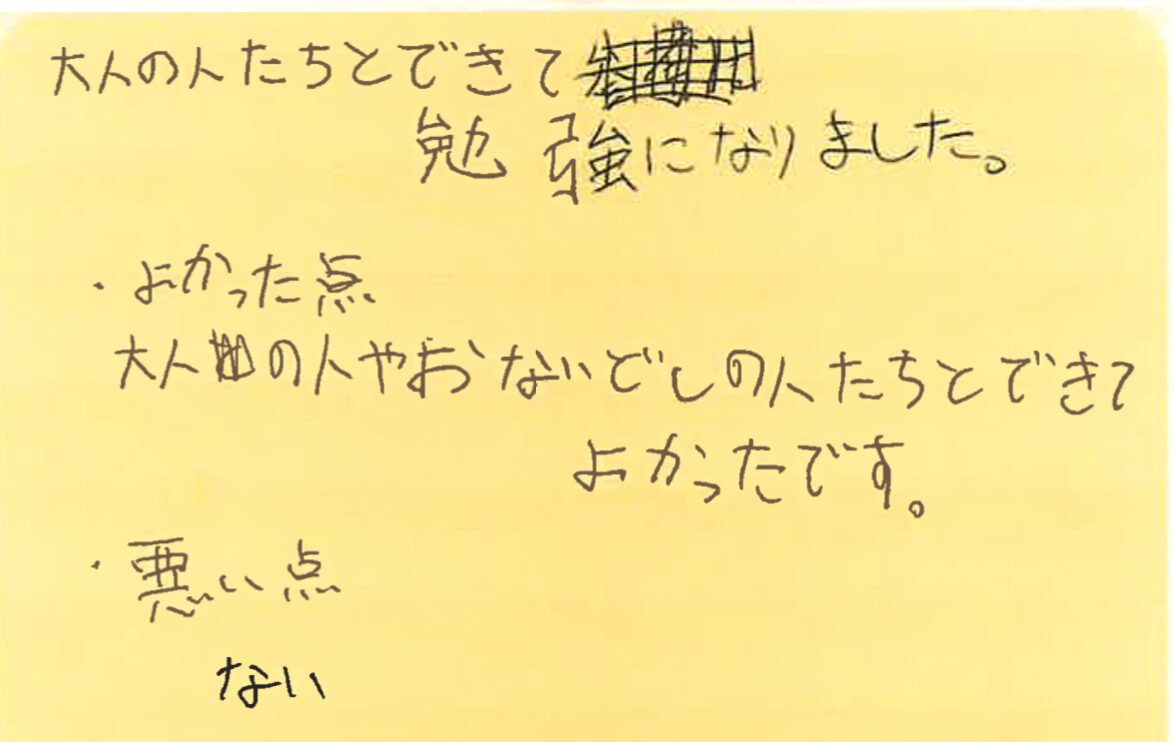 大人の人たちとできて
勉強になりました。
・よかった点
大人の人やおないどしの人たちとできて
よかったです。
・悪い点
ない